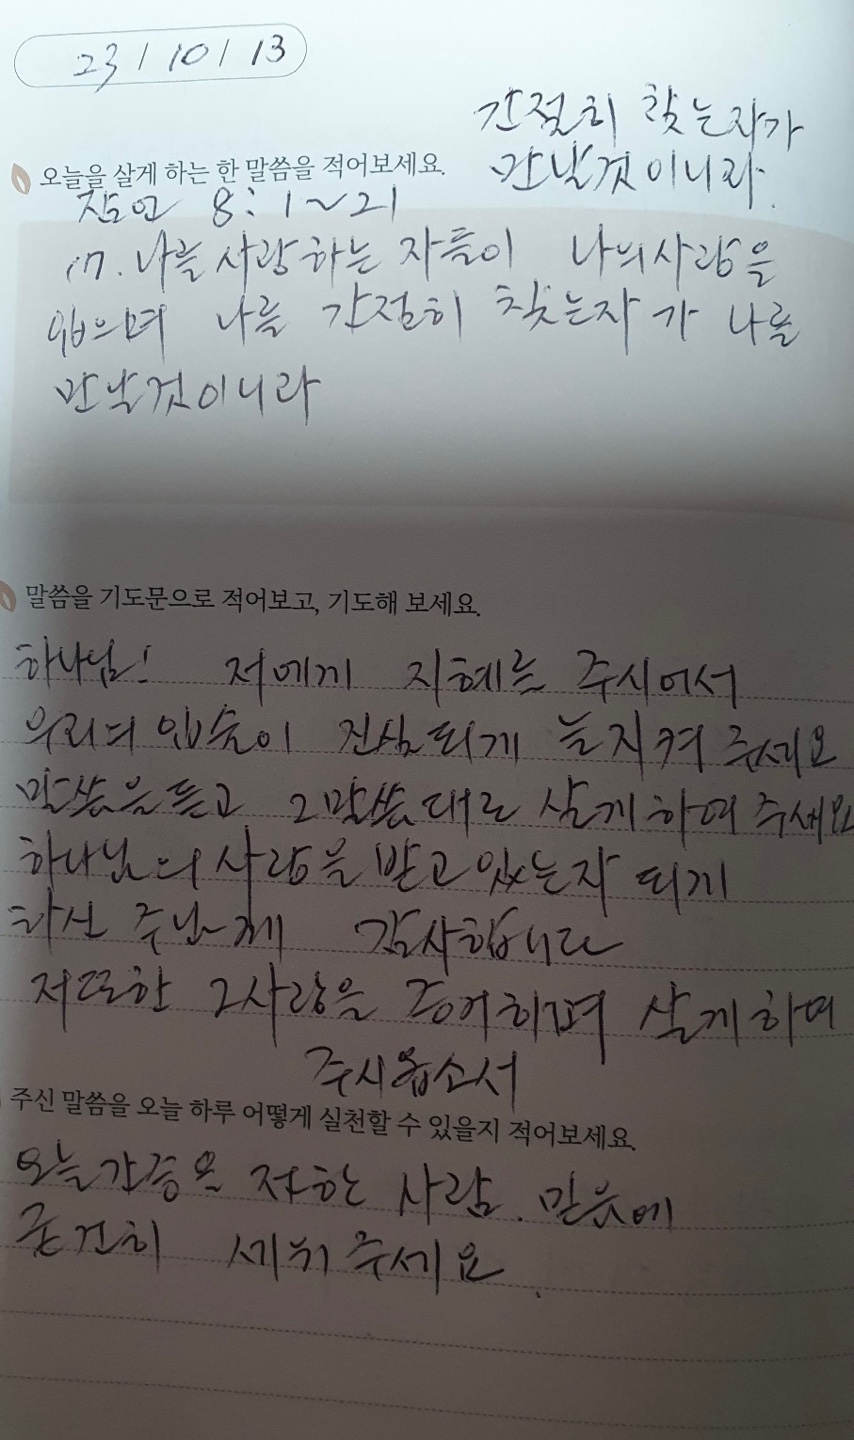 23 / 10 / 13
간절히 찾는자가
만날것이니라.
오늘을 살게 하는 한 말씀을 적어보세요.
잠언 8:1~21
17. 나를 사랑하는 자들이 나의사랑을
입으며 나를 간절히 찾는자가 나를
만날것이니라
말씀을 기도문으로 적어보고, 기도해 보세요.
하나님! 저에게 지혜를 주시어서
우리의 입술이 진실되게 늘지켜 주세요
말씀을듣고 그말씀대로 살게하여 주세요
하나님의 사랑을 받고있는자 되게
하신 주님께 감사합니다
저또한 그사랑을 증거하며 살게하여
주시옵소서
주신 말씀을 오늘 하루 어떻게 실천할 수 있을지 적어보세요.
오늘간증을 전하는 사람. 믿음에
굳건히 세워주세요.